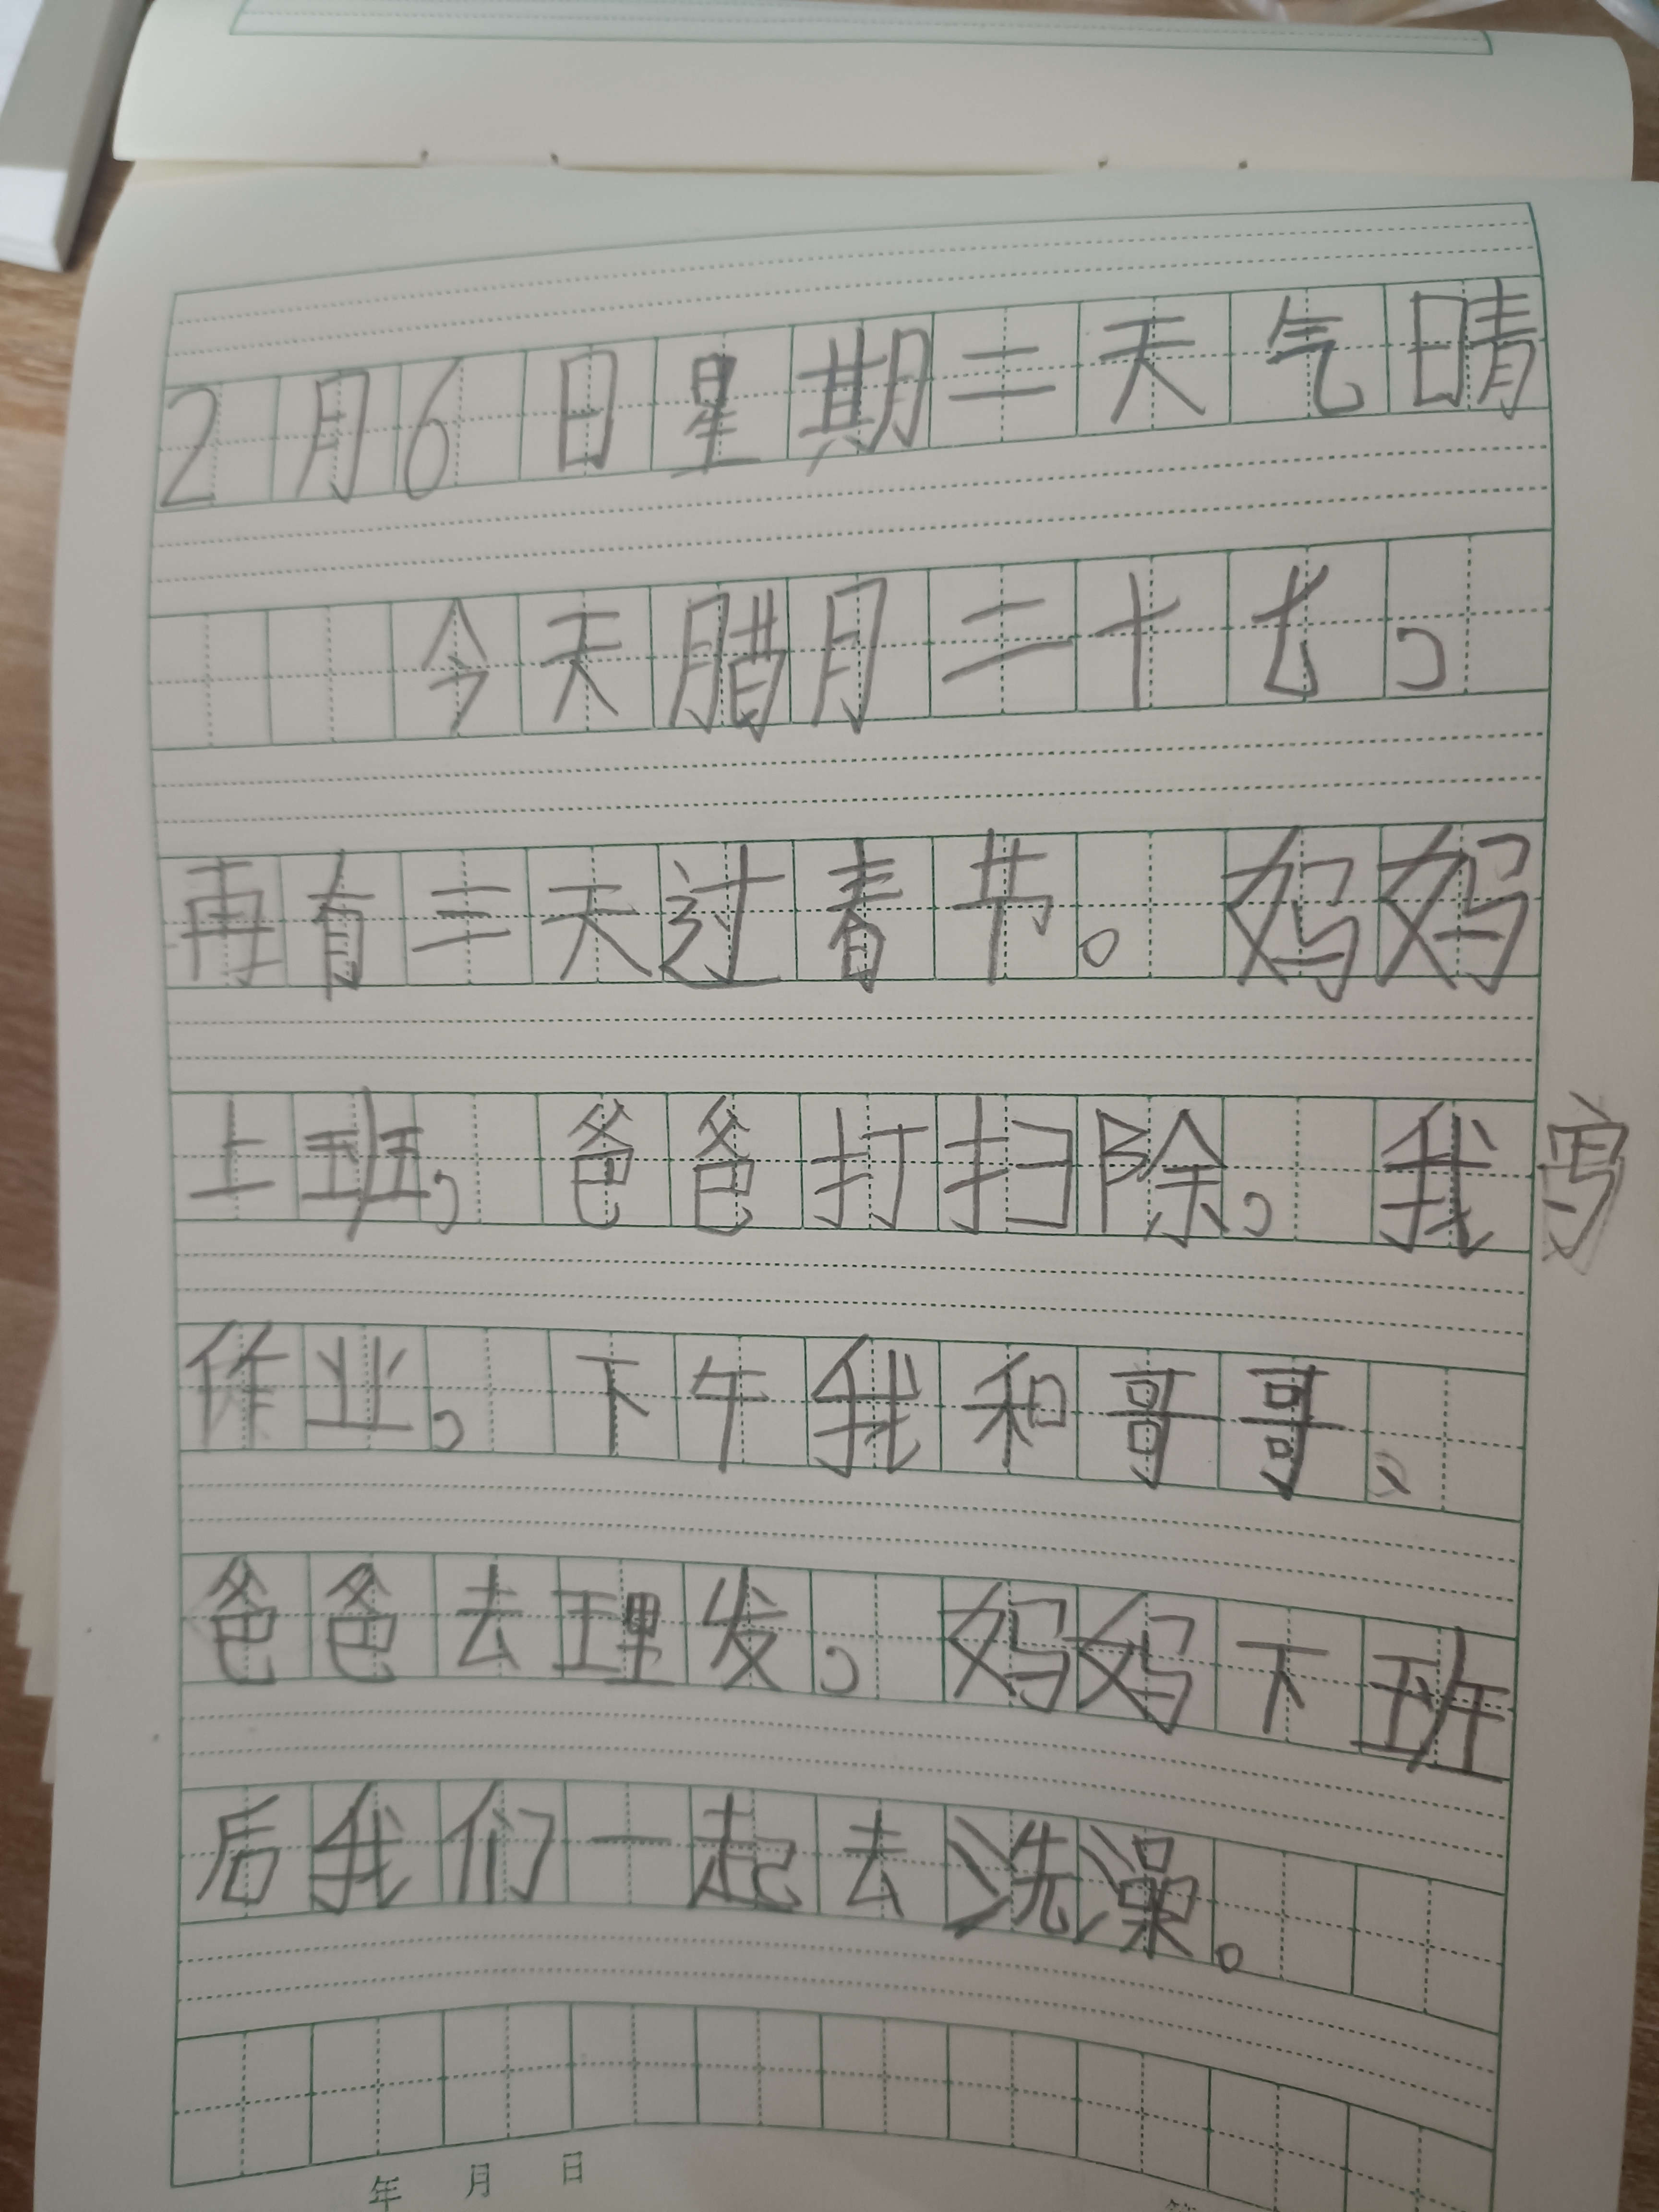 2月6日星期二天气晴
今天腊月二十七。
再有三天过春节。妈妈
上班。爸爸打扫除。我写
作业。下午我和哥哥、
爸爸去理发。妈妈下班
后我们一起去洗澡。
年 月 日